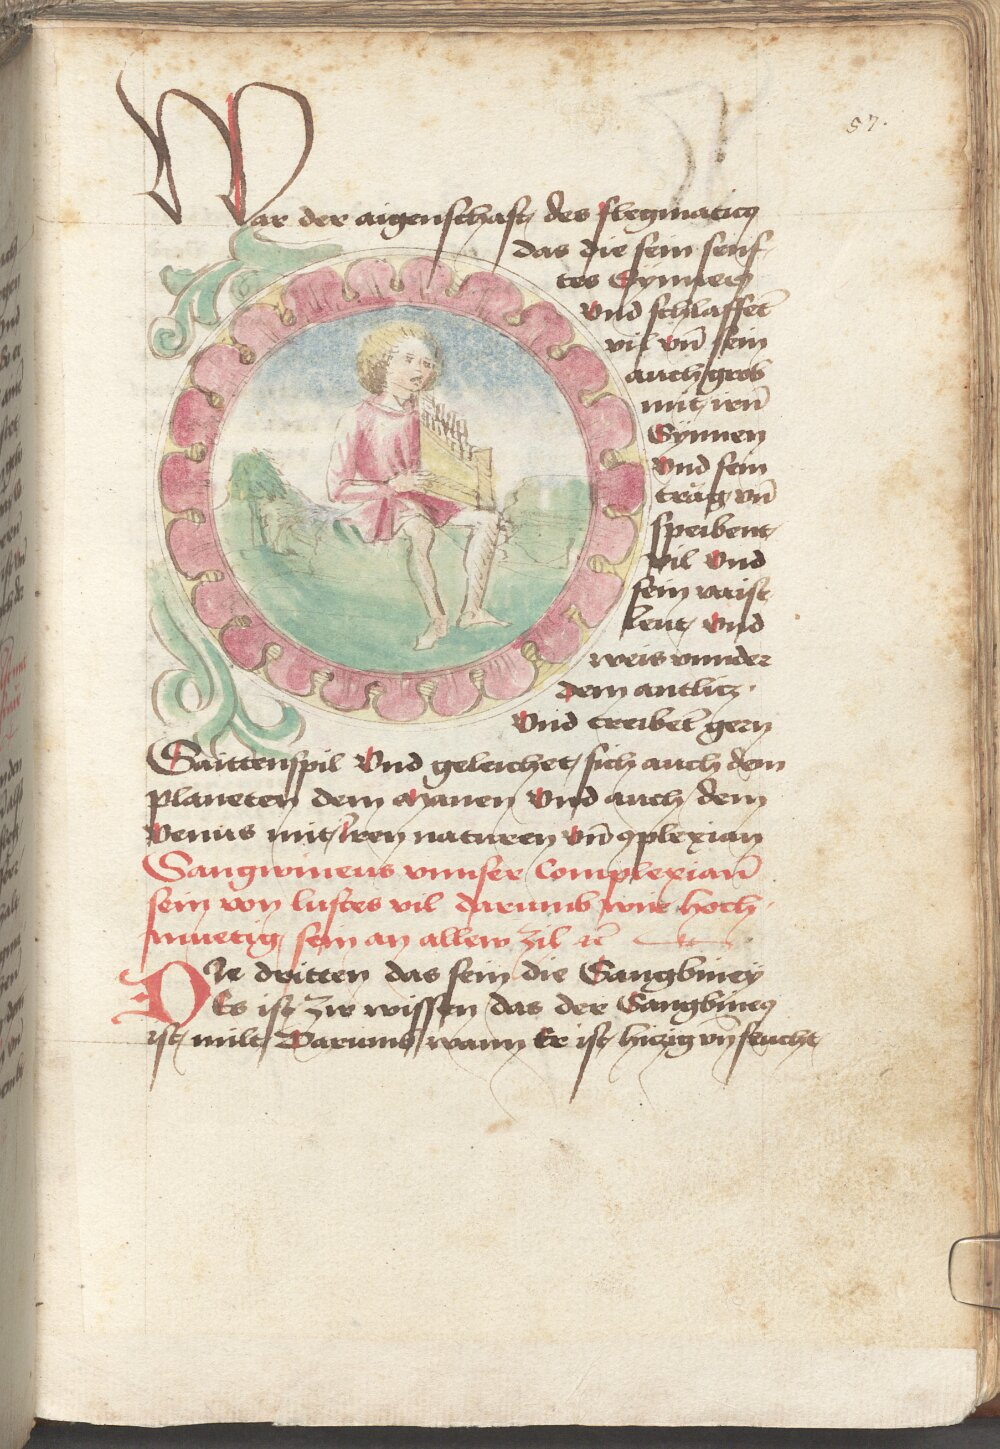 57.
War der aigenschaft des flegmaticꝯ
das die sein senf
tes Synnes
vnd schlaffet̄
vil vn̄ sein
auch grob
mit irn̄
Synnen
vnd sein
träg vn̄
speibent
vil vnd
sein vaist
leut vnd
weis vnnder
dem antlitz ·
vnd treibet̄ gern
Saittenspil vnd geleichet sich auch dem
planeten dem Manen vnd auch dem
venus mit Iren naturen vn̄ ꝯplexian
Sangwineus vnnser Complexian̄
sein von luftes vil darumb wir hoch
muetig sein an allem zil ꝛc̄
DIe dritten das sein die Sangbiney
Es ist zw wissen das der Sangbineꝯ
ist milt Darumb wann Er ist hitzig vn̄ feucht